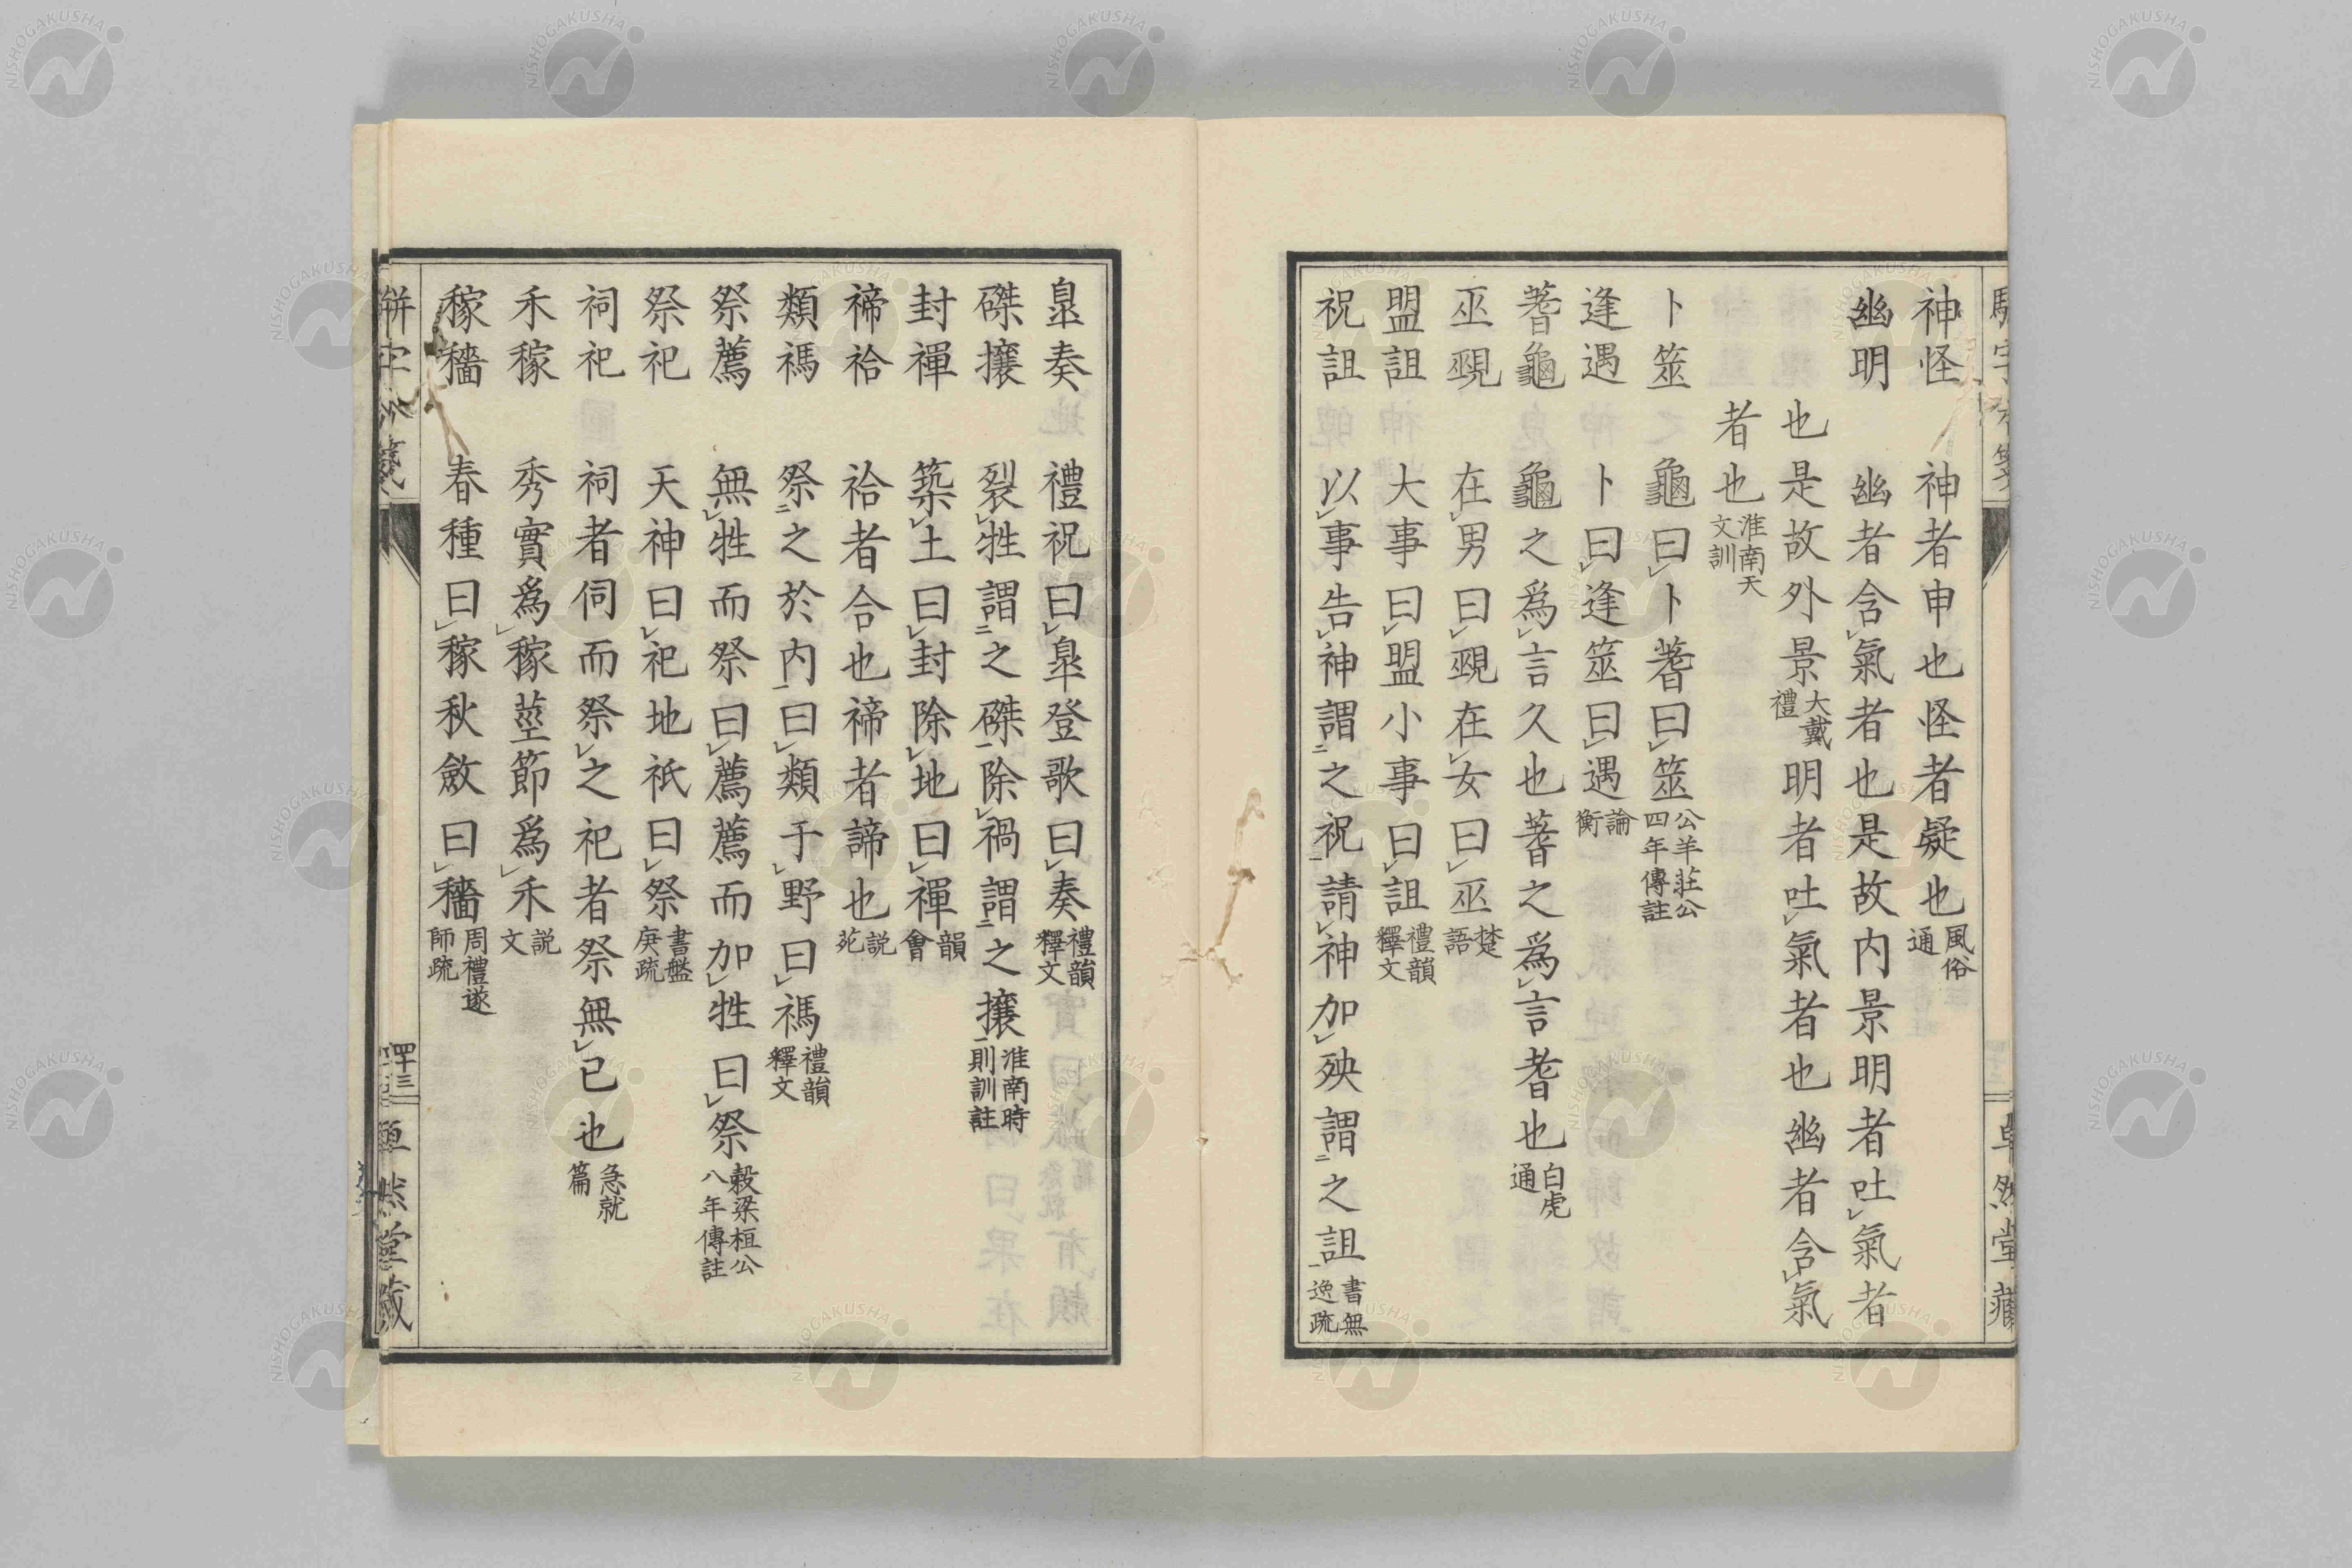 神怪 神者申也怪者疑也風俗通
幽明 幽者含氣者也是故内景明者吐氣者
也是故外景大戴禮明者吐氣者也幽者含氣
者也淮南天文訓
卜筮 龜曰卜蓍曰筮公羊莊公四年傳註
逢遇 卜曰逢筮曰遇論衡
蓍龜 龜之爲言久也蓍之爲言耆也白虎通
巫覡 在男曰覡在女曰巫楚語
盟詛 大事曰盟小事曰詛禮韻釋文
祝詛 以事告神謂二之祝一請神加殃謂二之詛一書無逸疏
皐奏 禮祝曰皐登歌曰奏禮韻釋文
磔攘 裂牲謂二之磔一除禍謂二之攘一淮南時則訓註
封禪 築土曰封除地曰禪韻會
禘祫 祫者合也禘者諦也説苑
類禡 祭二之於内一曰類于野曰禡禮韻釋文
祭薦 無牲而祭曰薦薦而加牲曰祭穀梁桓公八年傳註
祭祀 天神曰祀地祇曰祭書盤庚疏
祠祀 祠者伺而祭之祀者祭無已也急就篇
禾稼 秀實爲稼莖節爲禾説文
稼穡 春種曰稼秋斂曰穡周禮遂師疏
四十三